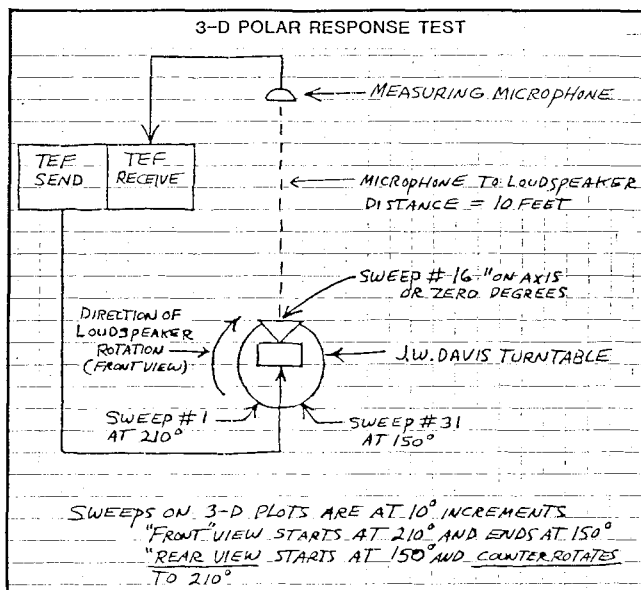 3-D POLAR RESPONSE TEST
MEASURING MICROPHONE
TEF
SEND
TEF
RECEIVE
MICROPHONE TO LOUDSPEAKER
DISTANCE = 10 FEET
SWEEP # 16 "ON AXIS
OR ZERO DEGREES
DIRECTION OF
LOUDSPEAKER
ROTATION
(FRONT VIEW)
J.W. DAVIS TURNTABLE
SWEEP #1
AT 210°
SWEEP #31
AT 150°
SWEEPS ON 3-D PLOTS ARE AT 10° INCREMENTS
"FRONT" VIEW STARTS AT 210° AND ENDS AT 150°
"REAR VIEW STARTS AT 150° AND COUNTERROTATES
TO 210°